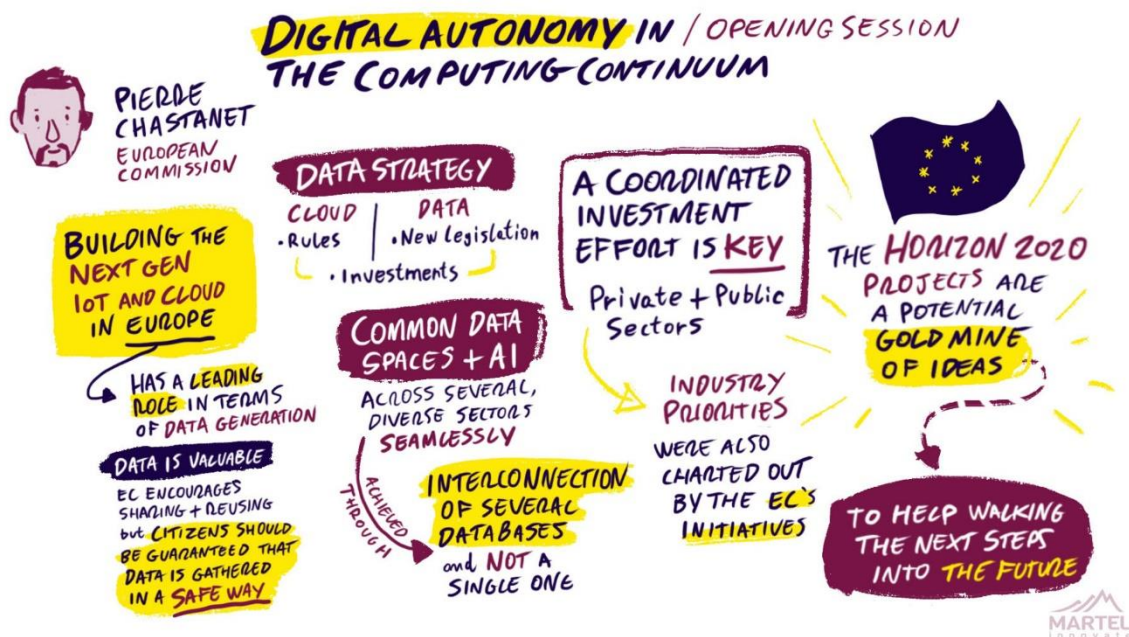 DIGITAL AUTONOMY IN / OPENING SESSION
THE COMPUTING CONTINUUM
PIERRE
CHASTANET
EUROPEAN
COMMISSION
BUILDING THE
NEXT GEN
IoT AND CLOUD
IN EUROPE
HAS A LEADING
ROLE IN TERMS
OF DATA GENERATION
DATA IS VALUABLE
EC ENCOURAGES
SHARING + REUSING
but CITIZENS SHOULD
BE GUARANTEED THAT
DATA IS GATHERED
IN A SAFE WAY
DATA STRATEGY
CLOUD
• Rules
DATA
• New Legislation
• Investments
COMMON DATA
SPACES + AI
ACROSS SEVERAL,
DIVERSE SECTORS
SEAMLESSLY
ACHIEVED
THROUGH
INTERCONNECTION
OF SEVERAL
DATABASES
and NOT A
SINGLE ONE
A COORDINATED
INVESTMENT
EFFORT IS KEY
Private + Public
Sectors
INDUSTRY
PRIORITIES
WERE ALSO
CHARTED OUT
BY THE EC's
INITIATIVES
THE HORIZON 2020
PROJECTS ARE
A POTENTIAL
GOLD MINE
OF IDEAS
TO HELP WALKING
THE NEXT STEPS
INTO THE FUTURE
MARTEL
innovate